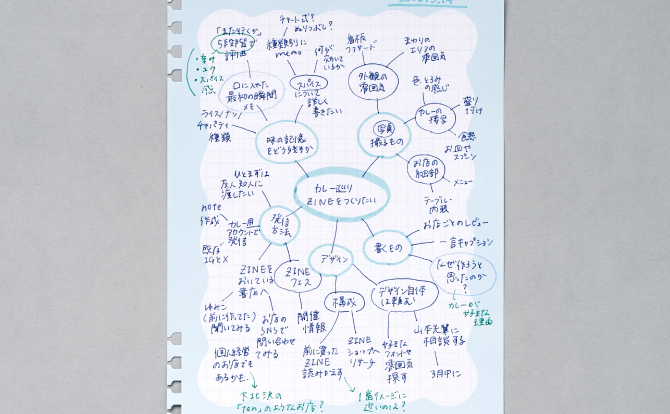 「また行くか」
5段階
評価
・辛み
・コク
・スパイス
感
口に入れた
最初の瞬間
メモ
チャート式?
ぬりつぶし?
種類別に
memo
何が
効いて
いるか
スパイス
について
詳しく
書きたい
ライス/ナン/
チャパティ
種類
味の記憶
をどう残すか
看板
ファサード
まわりの
エリアの
雰囲気
外観の
雰囲気
色、とろみ
の感じ
カレーの
描写
盛り
つけ
食器
お皿や
スプーン
写真
撮るもの
お店の
細部
メニュー
テーブル・
内装
カレー巡り
ZINEをつくりたい
ひとまずは
友人知人に
渡したい
note
作成
カレー用
アカウントで
発信
既存
IGとX
発信
方法
ZINEを
おいている
書店へ
ZINE
フェス
ゆみこ
(前に作ってた)
聞いてみる
お店の
SNSで
問い合わせ
てみる
開催
情報
個人経営
のお店でも
あるかも、
下北沢の
「ten」のようなお店?
デザイン
構成
前に買った
ZINE
読みかえす
ZINE
ショップへ
リサーチ
1番イメージに
近いのは?
デザイン自体
は頼む
好きな
フォントや
雰囲気
探す
山本先輩に
相談する
3月中に
書くもの
お店ごとのレビュー
一言キャプション
なぜ作ろうと
思ったのか
?
カレーが
好きな
理由